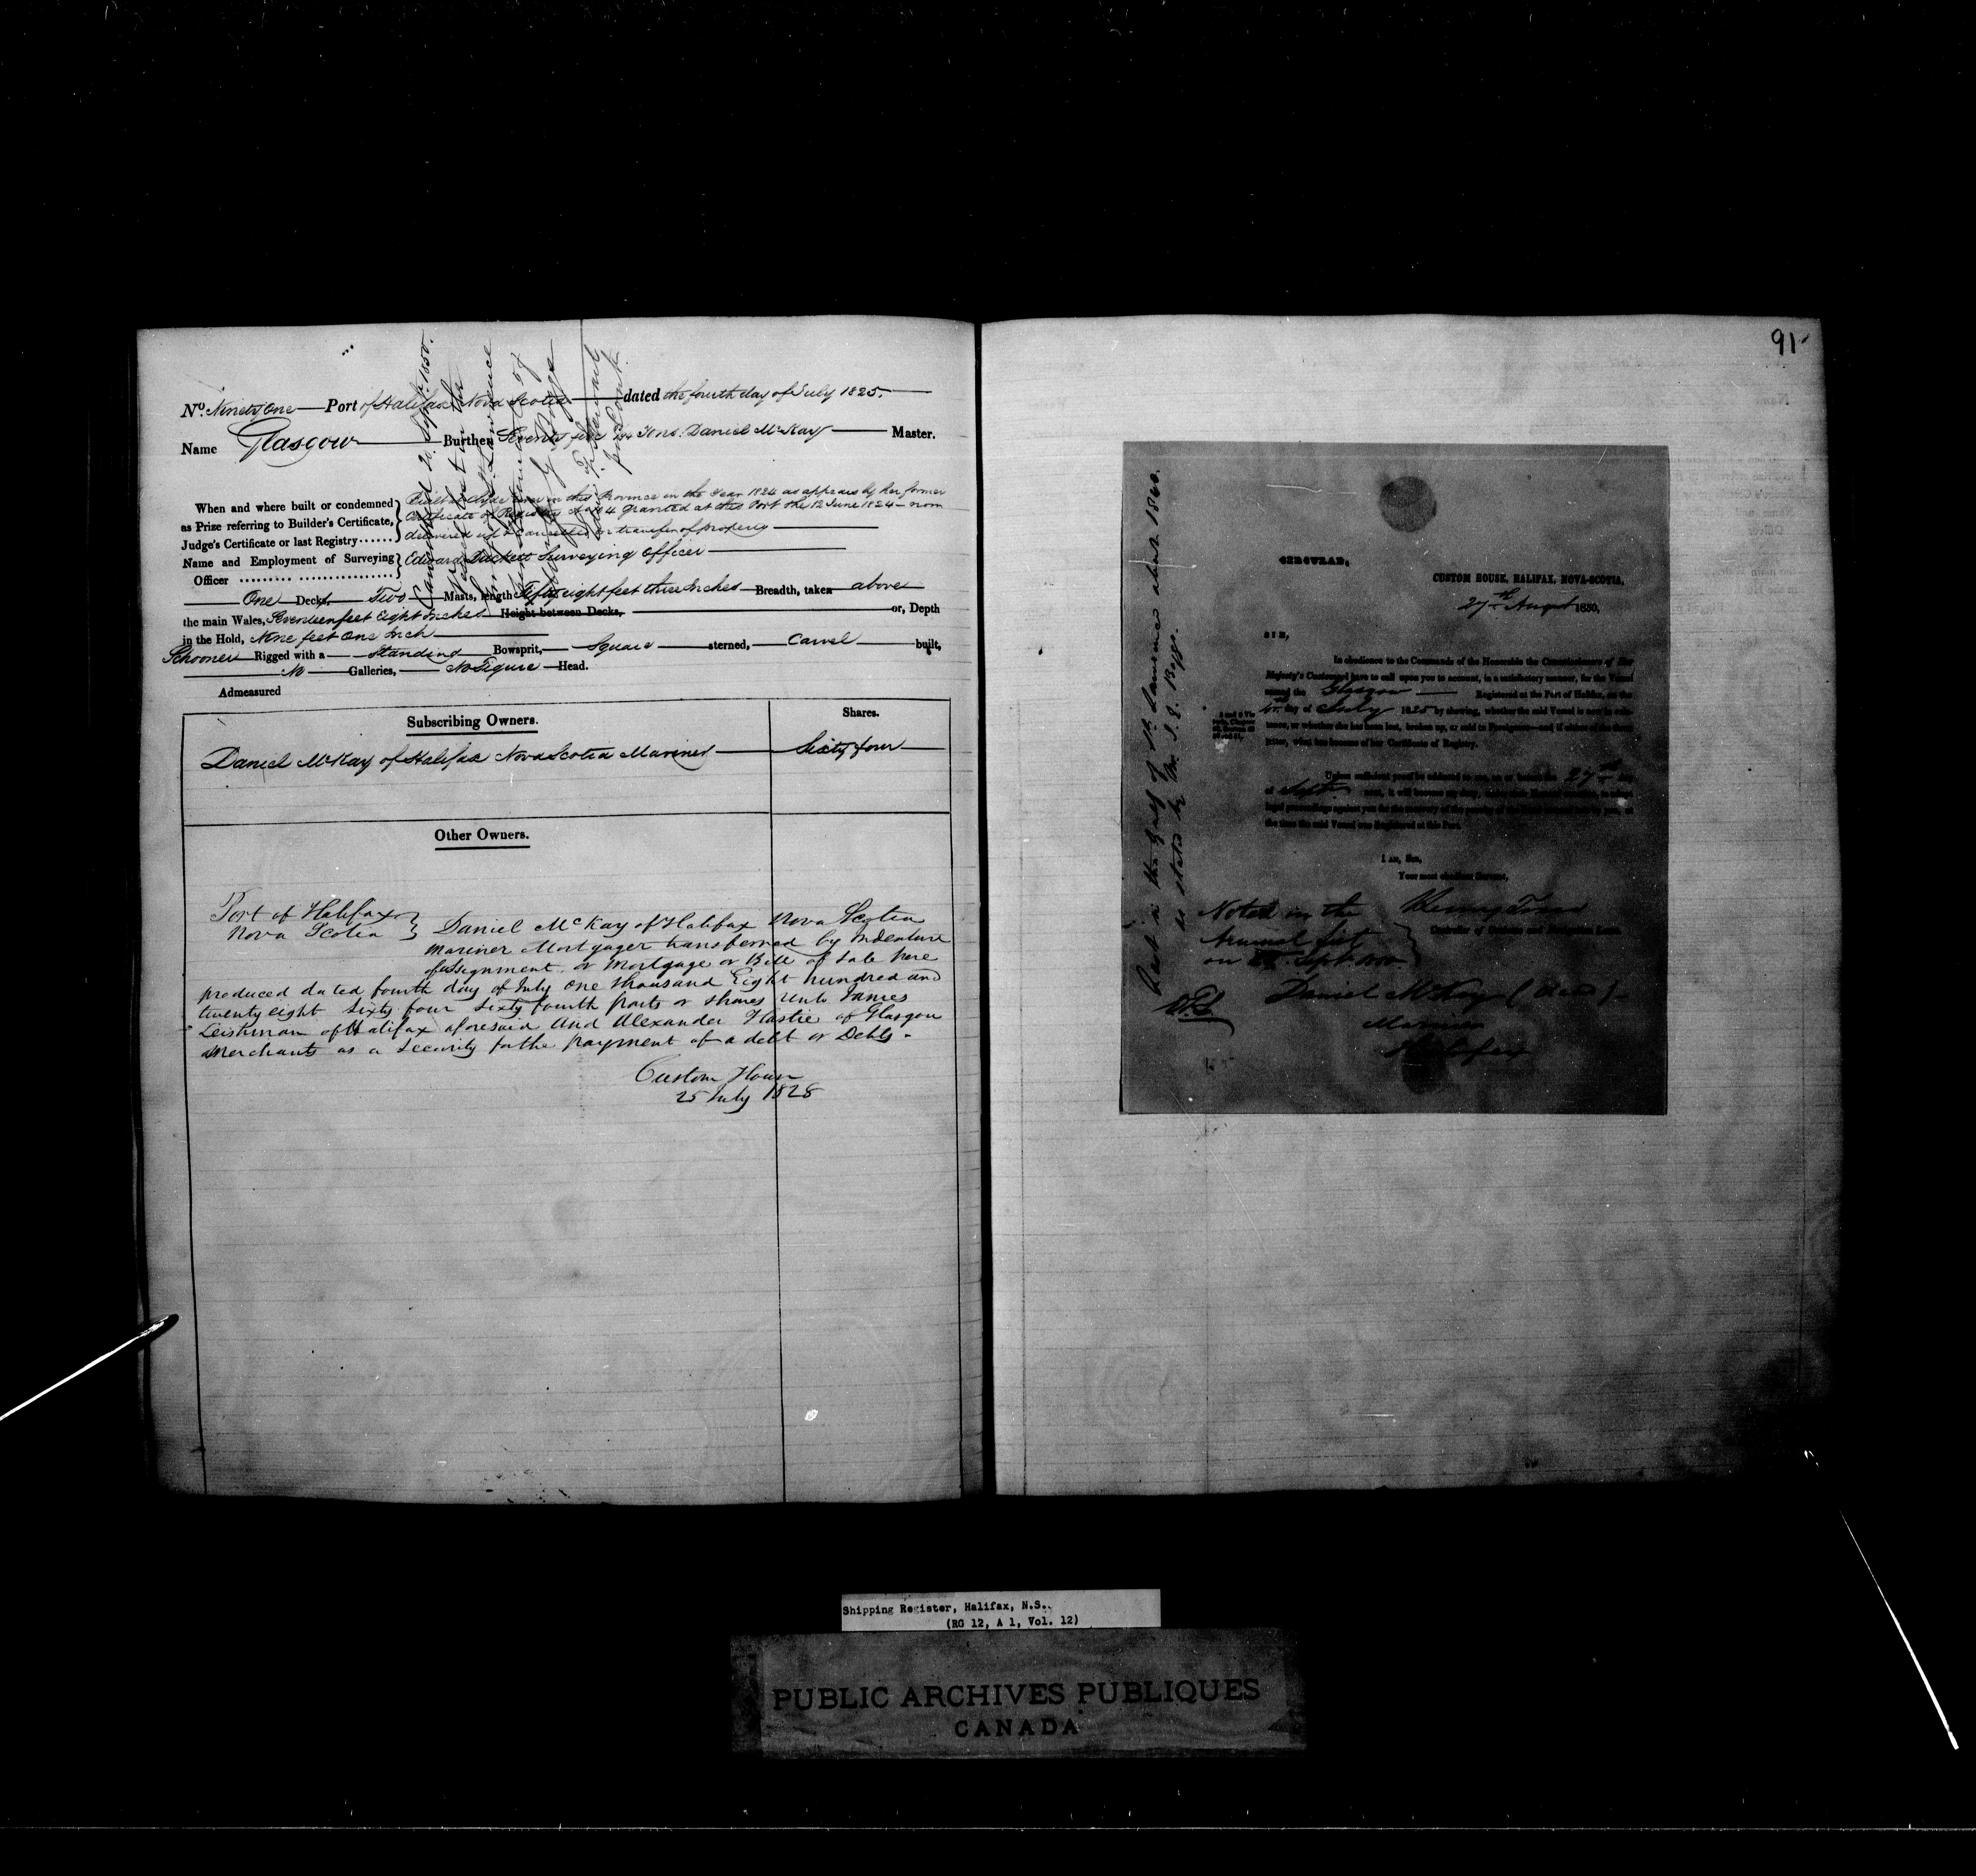 91
No. Ninety One Port of Halifax Nova Scotia dated the fourth day of July 1825.
Name Glasgow Burthen Seventy five Tons. Daniel McKay Master.
When and where built or condemned
as Prize referring to Builder's Certificate,
Judge's Certificate or last Registry
Built at Clyde River in this Province in the Year 1824 as appears by her former
Certificate of Registry No granted at this Port the 12 June 1824 now
delivered up & Cancelled on transfer of property
Name and Employment of Surveying
Officer
Edward Duckett Surveying Officer
One Deck, Two Masts, length Fifty eight feet three Inches Breadth, taken above
the main Wales, Seventeen feet Eight Inches Height between Decks, or, Depth
in the Hold, Nine feet One Inch
Schooner Rigged with a Standing Bowsprit, Square sterned, Carvel built,
No Galleries, No Figure Head.
Admeasured
Cancelled 20 Septr. 1850.
Subscribing Owners.
Shares.
Daniel McKay of Halifax Nova Scotia Mariner Sixty four
Other Owners.
Port of Halifax
Nova Scotia
Daniel McKay of Halifax Nova Scotia
Mariner Mortgager transferred by Indenture
of assignment or Mortgage or Bill of Sale here
produced dated fourth day of July One thousand Eight hundred and
twenty eight Sixty four Sixty fourth parts or shares unto James
Leishman of Halifax aforesaid and Alexander Hastie of Glasgow
Merchants as a Security for the payment of a debt or Debts.
Custom House
25 July 1828
CIRCULAR,
CUSTOM HOUSE, HALIFAX, NOVA-SCOTIA,
27th August 1850,
SIR,
In obedience to the Commands of the Honorable the Commissioners of Her
Majesty's Customs I have to call upon you to account, in a satisfactory manner, for the Vessel
named the Glasgow Registered at the Port of Halifax, on the
day of July 1825 by shewing, whether the said Vessel is now in exis-
tence, or whether she has been lost, broken up, or sold to Foreigners—and if either of the three
latter, what has become of her Certificate of Registry.
Unless sufficient proof be adduced to me, on or before the 27th day
of Septr. next, it will become my duty,
legal proceedings against you for the
the time the said Vessel was Registered at this Port.
I am, Sir,
Your most obedient Servant,
Noted in the
Annual list
on Septr.
Controller of Customs and Navigation Laws.
Daniel McKay (Dead)
Mariner
Halifax
Lost in the Gulf of St. Lawrence about 1840.
as stated by Mr. Boggs.
Shipping Register, Halifax, N.S.
(RG 12, A 1, Vol. 12)
PUBLIC ARCHIVES PUBLIQUES
CANADA